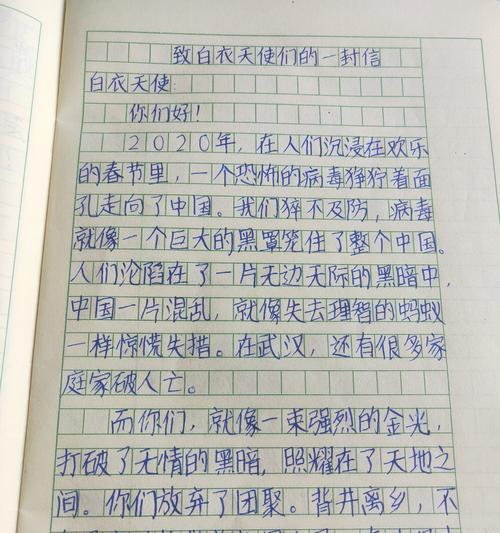 致白衣天使们的一封信
白衣天使:
你们好!
2020年,在人们沉浸在欢乐
的春节里,一个恐怖的病毒狰狞着面
孔走向了中国。我们猝不及防,病毒
就像一个巨大的黑罩笼住了整个中国。
人们沦陷在了一片无边无际的黑暗中,
中国一片混乱,就像失去理智的蚂蚁
一样惊慌失措。在武汉,还有很多家
庭家破人亡。
而你们,就像一束强烈的金光,
打破了无情的黑暗,照耀在了天地之
间。你们放弃了团聚。背井离乡,不